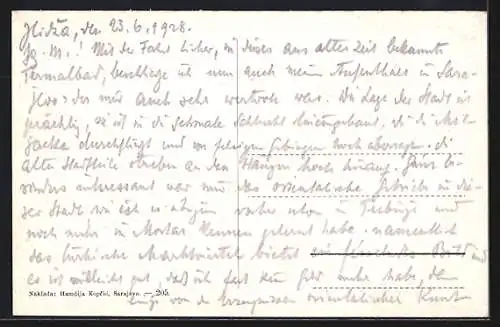 Ilidža, den 23.6.1928.
Lg. M.! Mit der Fahrt hieher, in dieses aus alter Zeit bekannte
Termalbad, beschliesse ich nun auch meinen Aufenthalt in Sara-
jewo, der mir auch sehr wertvoll war. Die Lage der Stadt ist
prächtig, sie ist in die schmale Schlucht hineingebaut, die die Mil-
jacka durchfliesst und von felsigen Gebirgen hoch überragt. die
alten Stadtteile streben an den Hängen hoch hinauf. Ganz be-
sonders interessant war mir das orientalische Getriebe in die-
ser Stadt, wie ich es übrigens vorher schon in Trebinje und
noch mehr in Mostar kennen gelernt habe. namentlich
das türkische Marktviertel bietet ein Bild und
es ist vielleicht gut, daß ich fast kein Geld mehr habe, denn
von den Erzeugnissen orientalischer Kunst
Naklada: Hamdija Kopčić, Sarajevo. — 205.